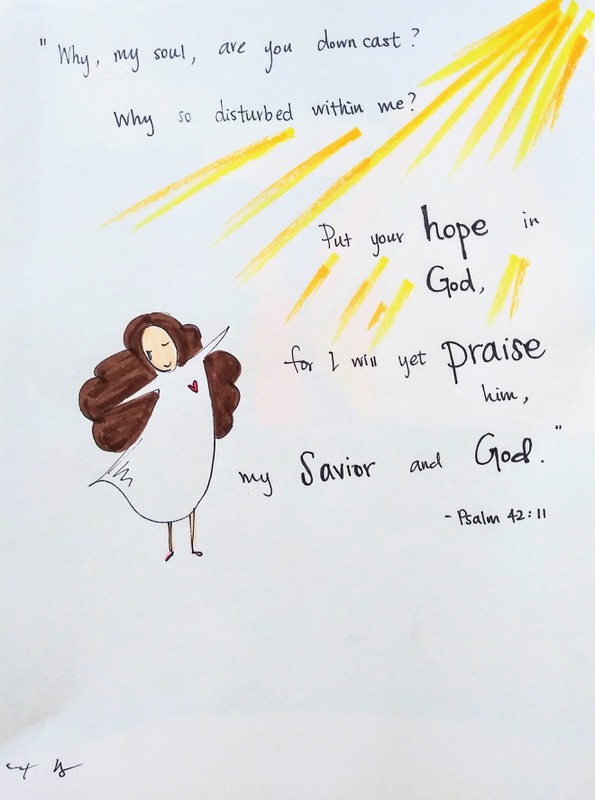 "Why, my soul, are you downcast?
Why so disturbed within me?
Put your hope in
God,
for I will yet praise
him,
my Savior and God."
- Psalm 42:11